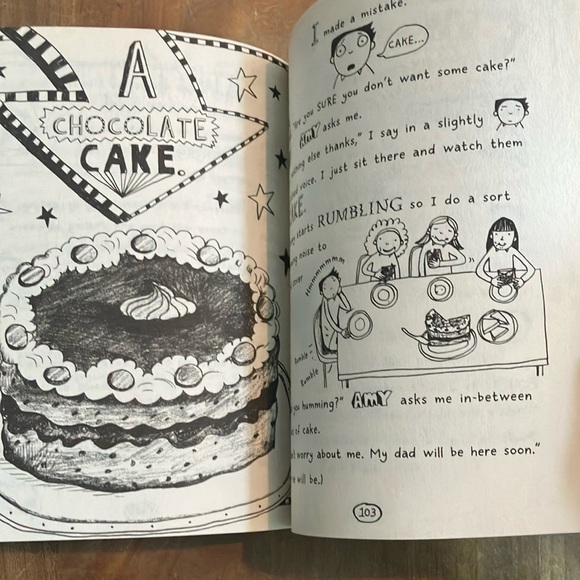 A
CHOCOLATE
CAKE.
I made a mistake.
CAKE...
you SURE you don't want some cake?"
AMY asks me.
else thanks," I say in a slightly
voice. I just sit there and watch them
starts RUMBLING so I do a sort
noise to
Hmmmmmmm
Rumble
Rumble
you humming?" AMY asks me in-between
of cake.
worry about me. My dad will be here soon."
will be.)
103